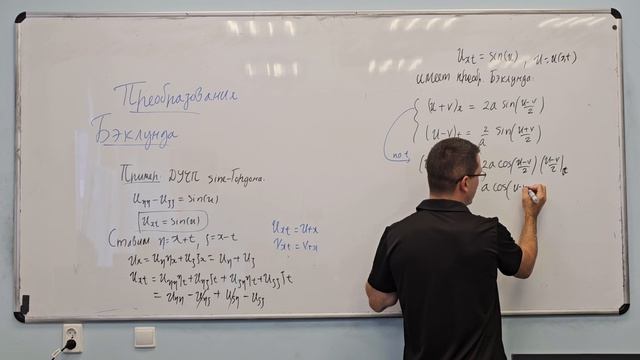 Преобразования
Бэклунда
Пример: ДУЧП sine-Гордона.
u_ηη − u_ξξ = sin(u)
u_xt = sin(u)
Ставим η = x+t, ξ = x−t
u_x = u_η η_x + u_ξ ξ_x = u_η + u_ξ
u_xt = u_ηη η_t + u_ηξ ξ_t + u_ξη η_t + u_ξξ ξ_t
= u_ηη − u_ηξ + u_ξη − u_ξξ
u_xt = u+x
v_xt = v+x
u_xt = sin(u), u=u(x,t)
имеет преобр. Бэклунда:
(u+v)_x = 2a sin(u−v/2)
(u−v)_t = 2/a sin(u+v/2)
по t
2a cos(u−v/2) (u−v/2)_t
a cos(